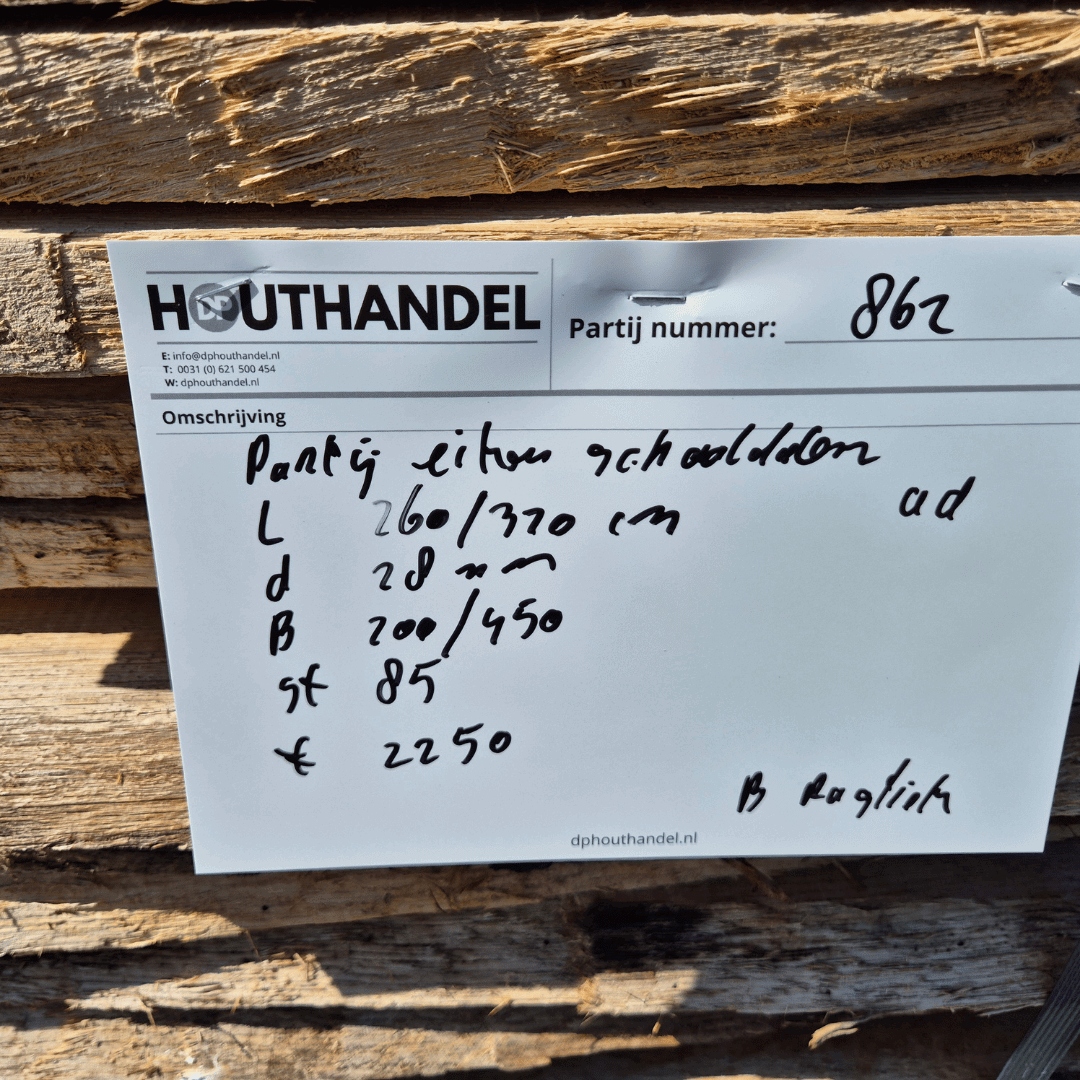 HOUTHANDEL
DP
E: info@dphouthandel.nl
T: 0031 (0) 621 500 454
W: dphouthandel.nl
Partij nummer: 862
Omschrijving
Partij eiken schaaldelen
ad
L 260/320 cm
d 28 mm
B 200/450
st 85
€ 2250
B
dphouthandel.nl